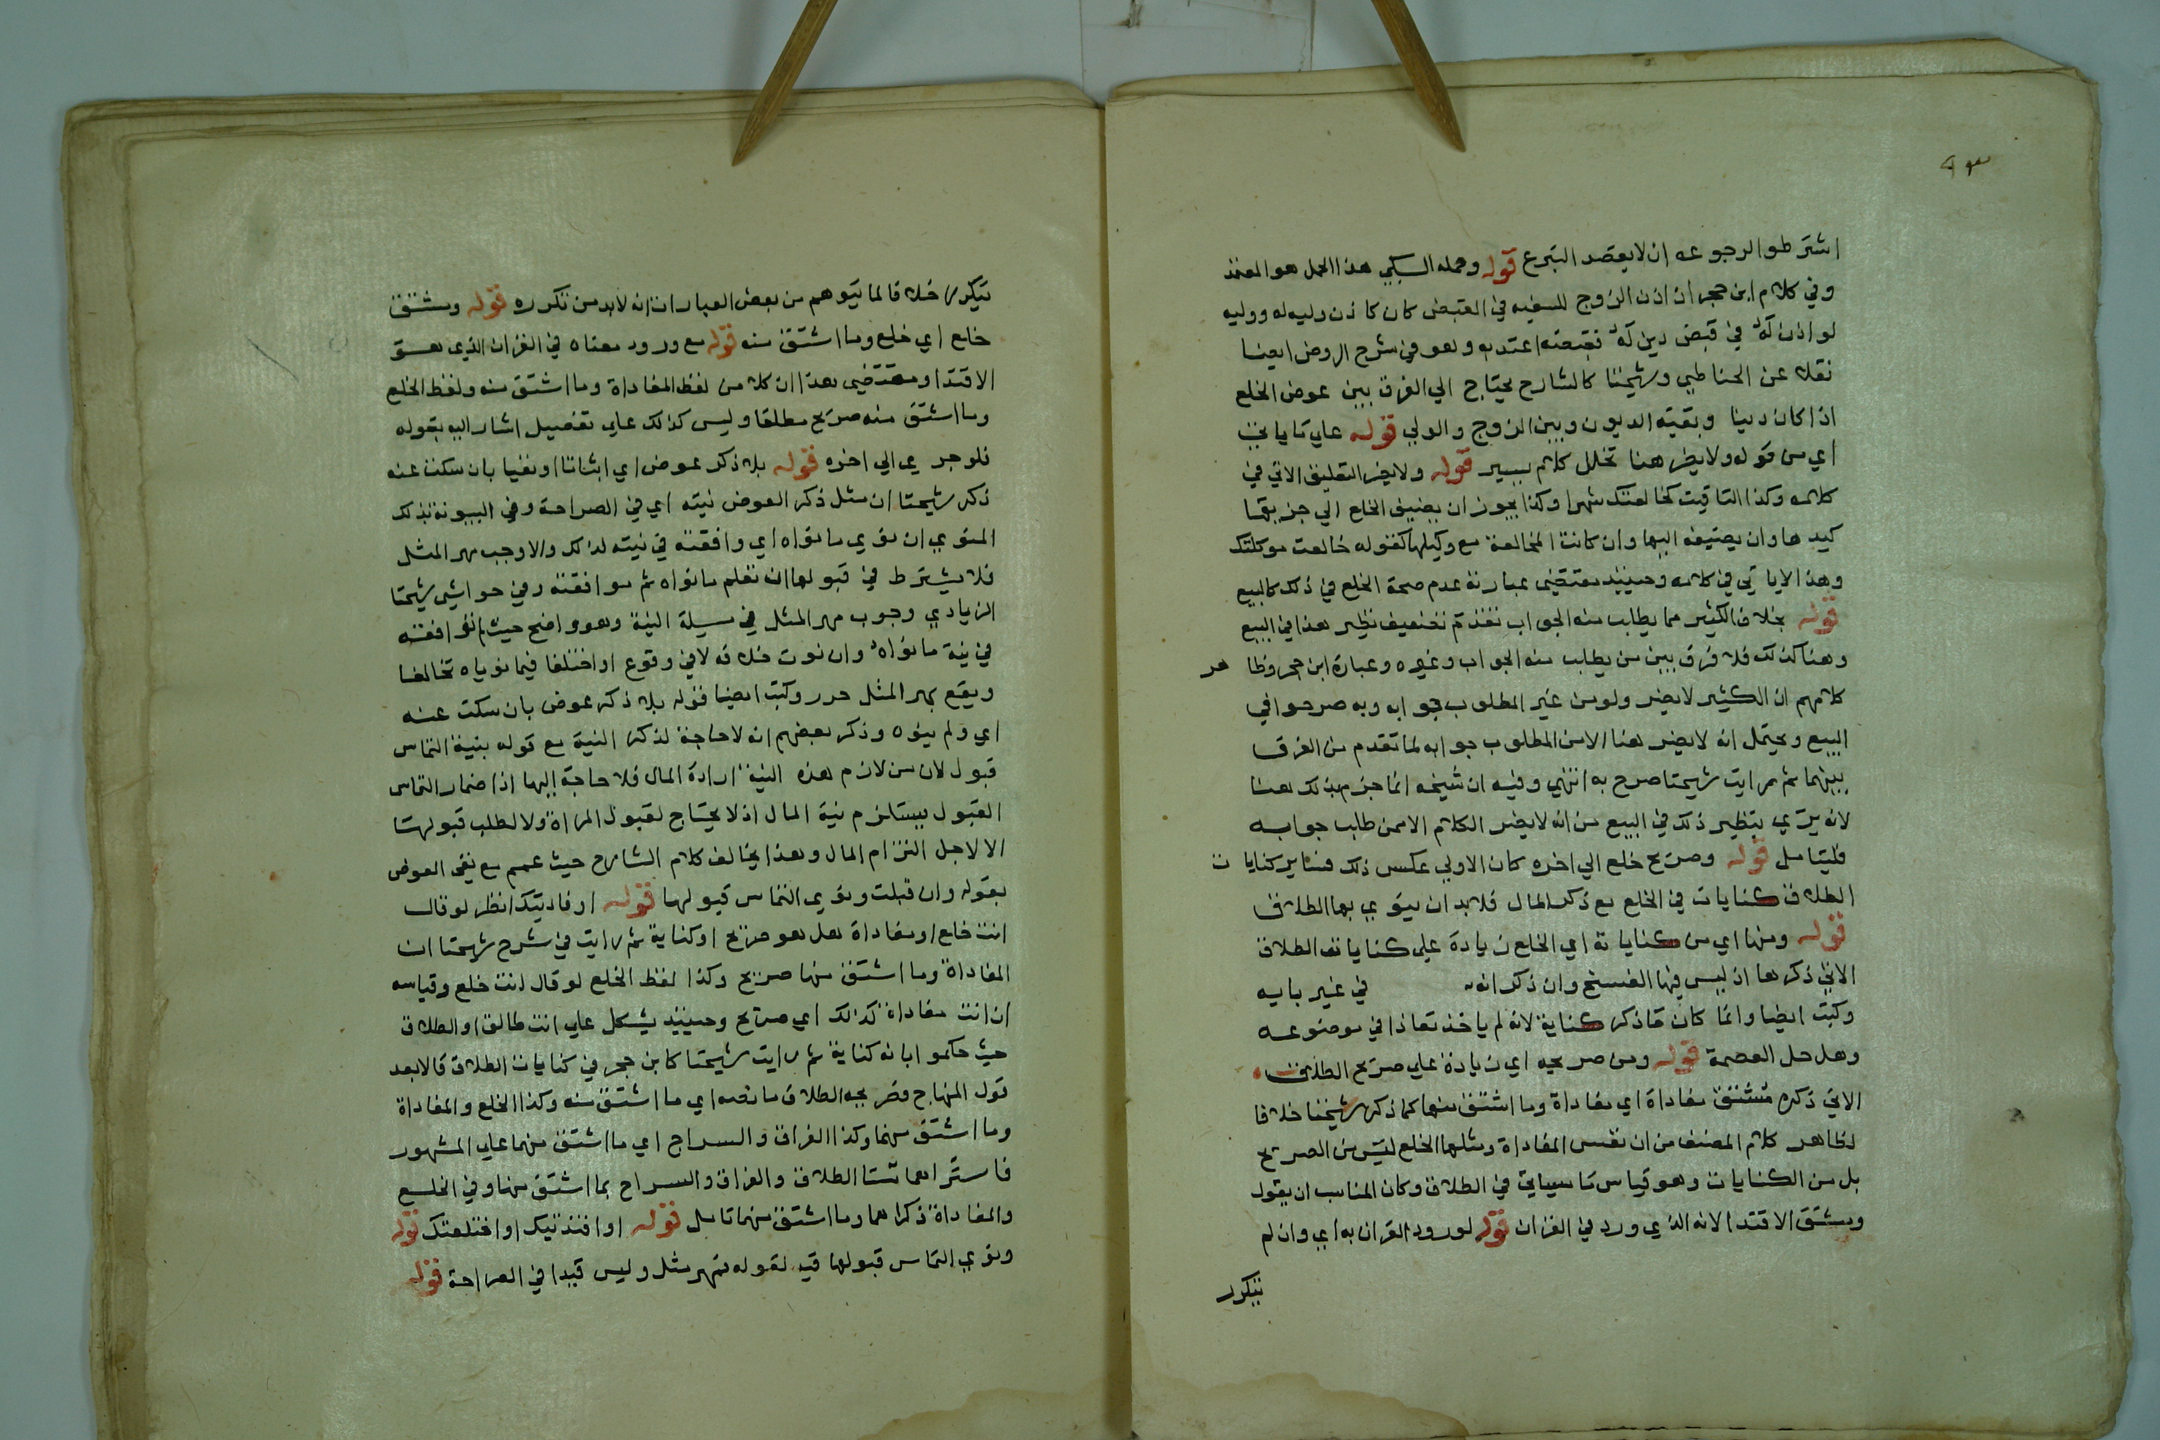 اشترطوا لرجوعه ان لا يقصد التبرع قوله وحمله السبكي هذا الحمل هو المعتمد
وفي كلام ابن حجر ان اذن الزوج للسفيه في القبض كان كاذن وليه له ووليه
لو اذن له في قبض دين له فقبضه اعتد به وهو في شرح الروض ايضا
نقله عن الحناطي وشيخنا كالشارح يحتاج الي الفرق بين عوض الخلع
اذا كان دينا وبقية الديون وبين الزوج والولي قوله علي ما ياتي
اي من قوله ولا يضر هنا تخلل كلام يسير قوله ولا يضر التعليق الاتي في
كلامه وكذا التاقيت كخالعتك شهرا وكذا يجوز ان يضيف الخلع الي جزيها
كيدها وان يضيفه اليها وان كانت المخالعة مع وكيلها كقوله خالعت موكلتك
وهذا لا ياتي في كلامه وحينيذ مقتضي عبارته عدم صحة الخلع في ذلك كالبيع
قوله بخلاف الكثير مما يطلب منه الجواب تقدم تضعيف نظير هذا في البيع
وهنا كذلك فلا فرق بين من يطلب منه الجواب وغيره وعبارة ابن حجر وظا هر
كلامهم ان الكثير لا يضر ولو من غير المطلوب جوابه وبه صرحوا في
البيع ويحتمل انه لا يضر هنا الا من المطلوب جوابه لما تقدم من الفرق
بينهما ثم رايت شيخنا صرح به انتهي وفيه ان شيخه انما جزم بذلك هنا
لانه يري بنظير ذلك في البيع من انه لا يضر الكلام الا ممن طلب جوابه
فليتامل قوله وصريح خلع الي اخره كان الاولي عكس ذلك فسائر كنايا ت
الطلاق كنايات في الخلع مع ذكر المال فلا بد ان ينوي بها الطلاق
قوله ومنها اي من كناياته اي الخلع زيادة علي كنايات الطلاق
الاتي ذكرها اذ ليس فيها الفسخ وان ذكر انه في غير بابه
وكتب ايضا وانما كان ما ذكر كناية لانه لم ياخذ نفاذا في موضوعه
وهل حل العصمة قوله ومن صريحه اي زيادة علي صريح الطلاق
الاتي ذكره مشتق مفاداة اي مفاداة وما اشتق منها كما ذكره شيخنا خلافا
لظاهر كلام المصنف من ان نفس المفاداة ومثلها الخلع ليس من الصريح
بل من الكنايات وهو قياس ما سياتي في الطلاق وكان المناسب ان يقول
ومشتق الافتدا لانه الذي ورد في القران قوله لورود القران به اي وان لم
يتكرر
يتكرر خلافا لما يتوهم من بعض العبارات انه لابد من تكرره قوله ومشتق
خلع اي خلع وما اشتق منه قوله مع ورود معناه في القران الذي هو
الافتدا ومقتضي هذا ان كلا من لفظ المفاداة وما اشتق منه ولفظ الخلع
وما اشتق منه صريح مطلقا وليس كذلك علي تفصيل اشار اليه بقوله
فلو جري الي اخره قوله بلا ذكر عوض اي اثباتا او نفيا بان سكت عنه
ذكر شيخنا ان مثل ذكر العوض نيته اي في الصراحة وفي البينونة بذلك
المنوي ان نوي ما نواه اي وافقته في نيته لذلك والا وجب مهر المثل
فلا يشترط في قبولها ان تعلم ما نواه ثم موافقته وفي حواشي شيخنا
الزيادي وجوب مهر المثل في مسيلة النية وهو واضح حيث لم توافقه
في نية ما نواه وان نوت خلافه لا في وقوع او اختلفا فيما نوياه تخالفا
ويقع بمهر المثل حرر وكتب ايضا قوله بلا ذكر عوض بان سكت عنه
اي ولم ينوه وذكر بعضهم انه لا حاجة لذكر النية مع قوله بنية التماس
قبول لان من لازم هذه النية ارادة المال فلا حاجة اليها اذ اضمار التماس
القبول يستلزم نية المال اذ لا يحتاج لقبول المراة ولا لطلب قبولها
الا لاجل التزام المال وهذا يخالف كلام الشارح حيث عمم مع نفي العوض
بقوله وان قبلت ونوي التماس قبولها قوله او فاديتك انظر لو قال
انت خلع او مفاداة هل هو صريح او كناية ثم رايت في شرح شيخنا ان
المفاداة وما اشتق منها صريح وكذا لفظ الخلع لو قال انت خلع وقياسه
ان انت مفاداة كذلك اي صريح وحينيذ يشكل علي انت طالق او الطلاق
حيث حكموا بانه كناية ثم رايت شيخنا كابن حجر في كنايات الطلاق قالا بعد
قول المنهاج فصريحه الطلاق ما نصه اي ما اشتق منه وكذا الخلع والمفاداة
وما اشتق منهما وكذا الفراق والسراج اي ما اشتق منهما علي المشهور
فاستراهما تستا الطلاق والفراق والسراح بما اشتق منها وفي الخلع
والمفاداة ذكراهما وما اشتق منهما تامل قوله او افتديتك او اختلعتك قوله
ونوي التماس قبولها قيد لقوله فمهر مثل وليس قيدا في الصراحة قوله